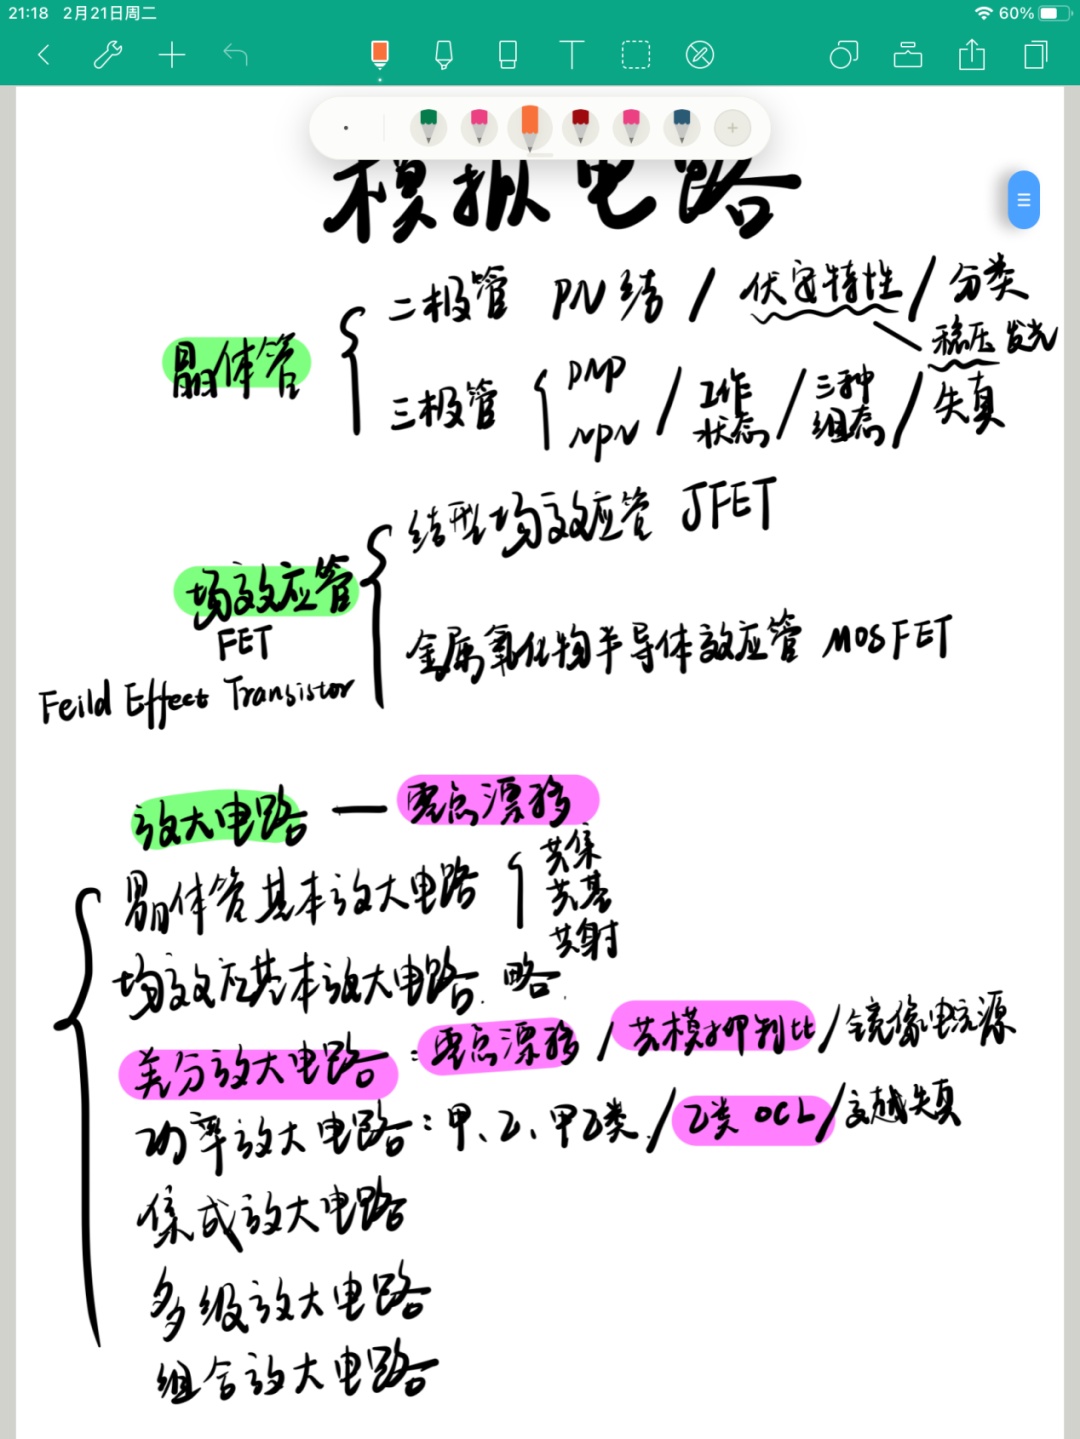 21:18 2月21日周二 60%
模拟电路
晶体管
二极管 PN结 / 伏安特性 / 分类
稳压 发光
三极管 PNP NPN / 工作状态 / 三种组态 / 失真
场效应管
FET
Feild Effect Transistor
结型场效应管 JFET
金属氧化物半导体效应管 MOSFET
放大电路 — 零点漂移
晶体管基本放大电路
共集
共基
共射
场效应基本放大电路. 略.
差分放大电路:零点漂移 / 共模抑制比 / 镜像电流源
功率放大电路:甲、乙、甲乙类. / 乙类 OCL / 交越失真
集成放大电路
多级放大电路
组合放大电路